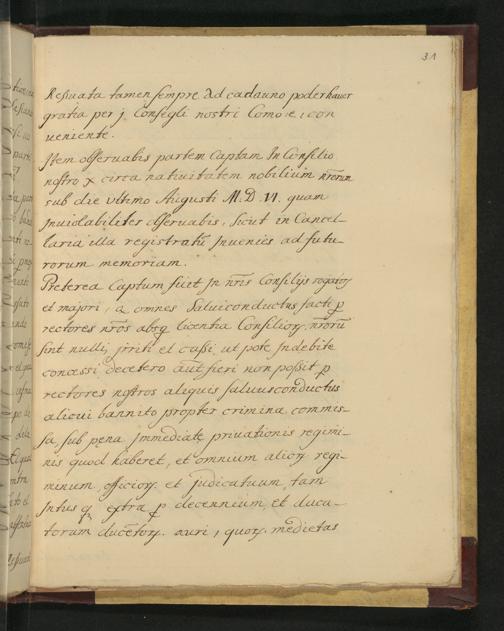 31
Reseruata tamen sempre ad cadauno poder hauer
gratia per j Consegli nostri Como e, con
ueniente.
Item obseruabis partem Captam In Consilio
nostro X circa natiuitatem nobilium nrõrum
sub die ultimo Augusti M.D.VI. quam
Inuiolabiliter obseruabis, Sicut in Cancel-
laria illa registratũ Inuenies ad futu-
rorum memoriam.
Preterea Captum fuit In nr̃is Consilijs rogatorꝫ
et majori, q̃ omnes Saluiconductus facti ꝑ
rectores nr̃os absqꝫ licentia Consiliorꝫ nrõrũ
sint nulli, jrriti et cassi, ut pote Indebite
concessi decetero aut̃ fieri non possit ꝑ
rectores nostros aliquis saluusconductus
alicui bannito propter crimina commis-
sa, sub pęna Immediatę priuationis regimi-
nis quod haberet, et omnium aliorꝫ regi-
minum, officiorꝫ et Judicatuum, tam
Intus qꝫ extra ꝑ decennium, et duca-
torum ducẽtorꝫ. auri, quorꝫ. medietas